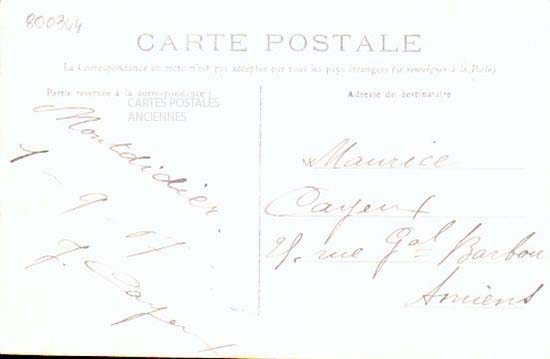 800344
CARTE POSTALE
La Correspondance au recto n'est pas acceptée par tous les pays étrangers (se renseigner à la Poste)
Partie réservée à la correspondance :
CARTES POSTALES
ANCIENNES
Montdidier
1 - 9 - 07
J. Cayeux
Adresse du destinataire
Maurice
Cayeux
rue Gal Barbou
Amiens